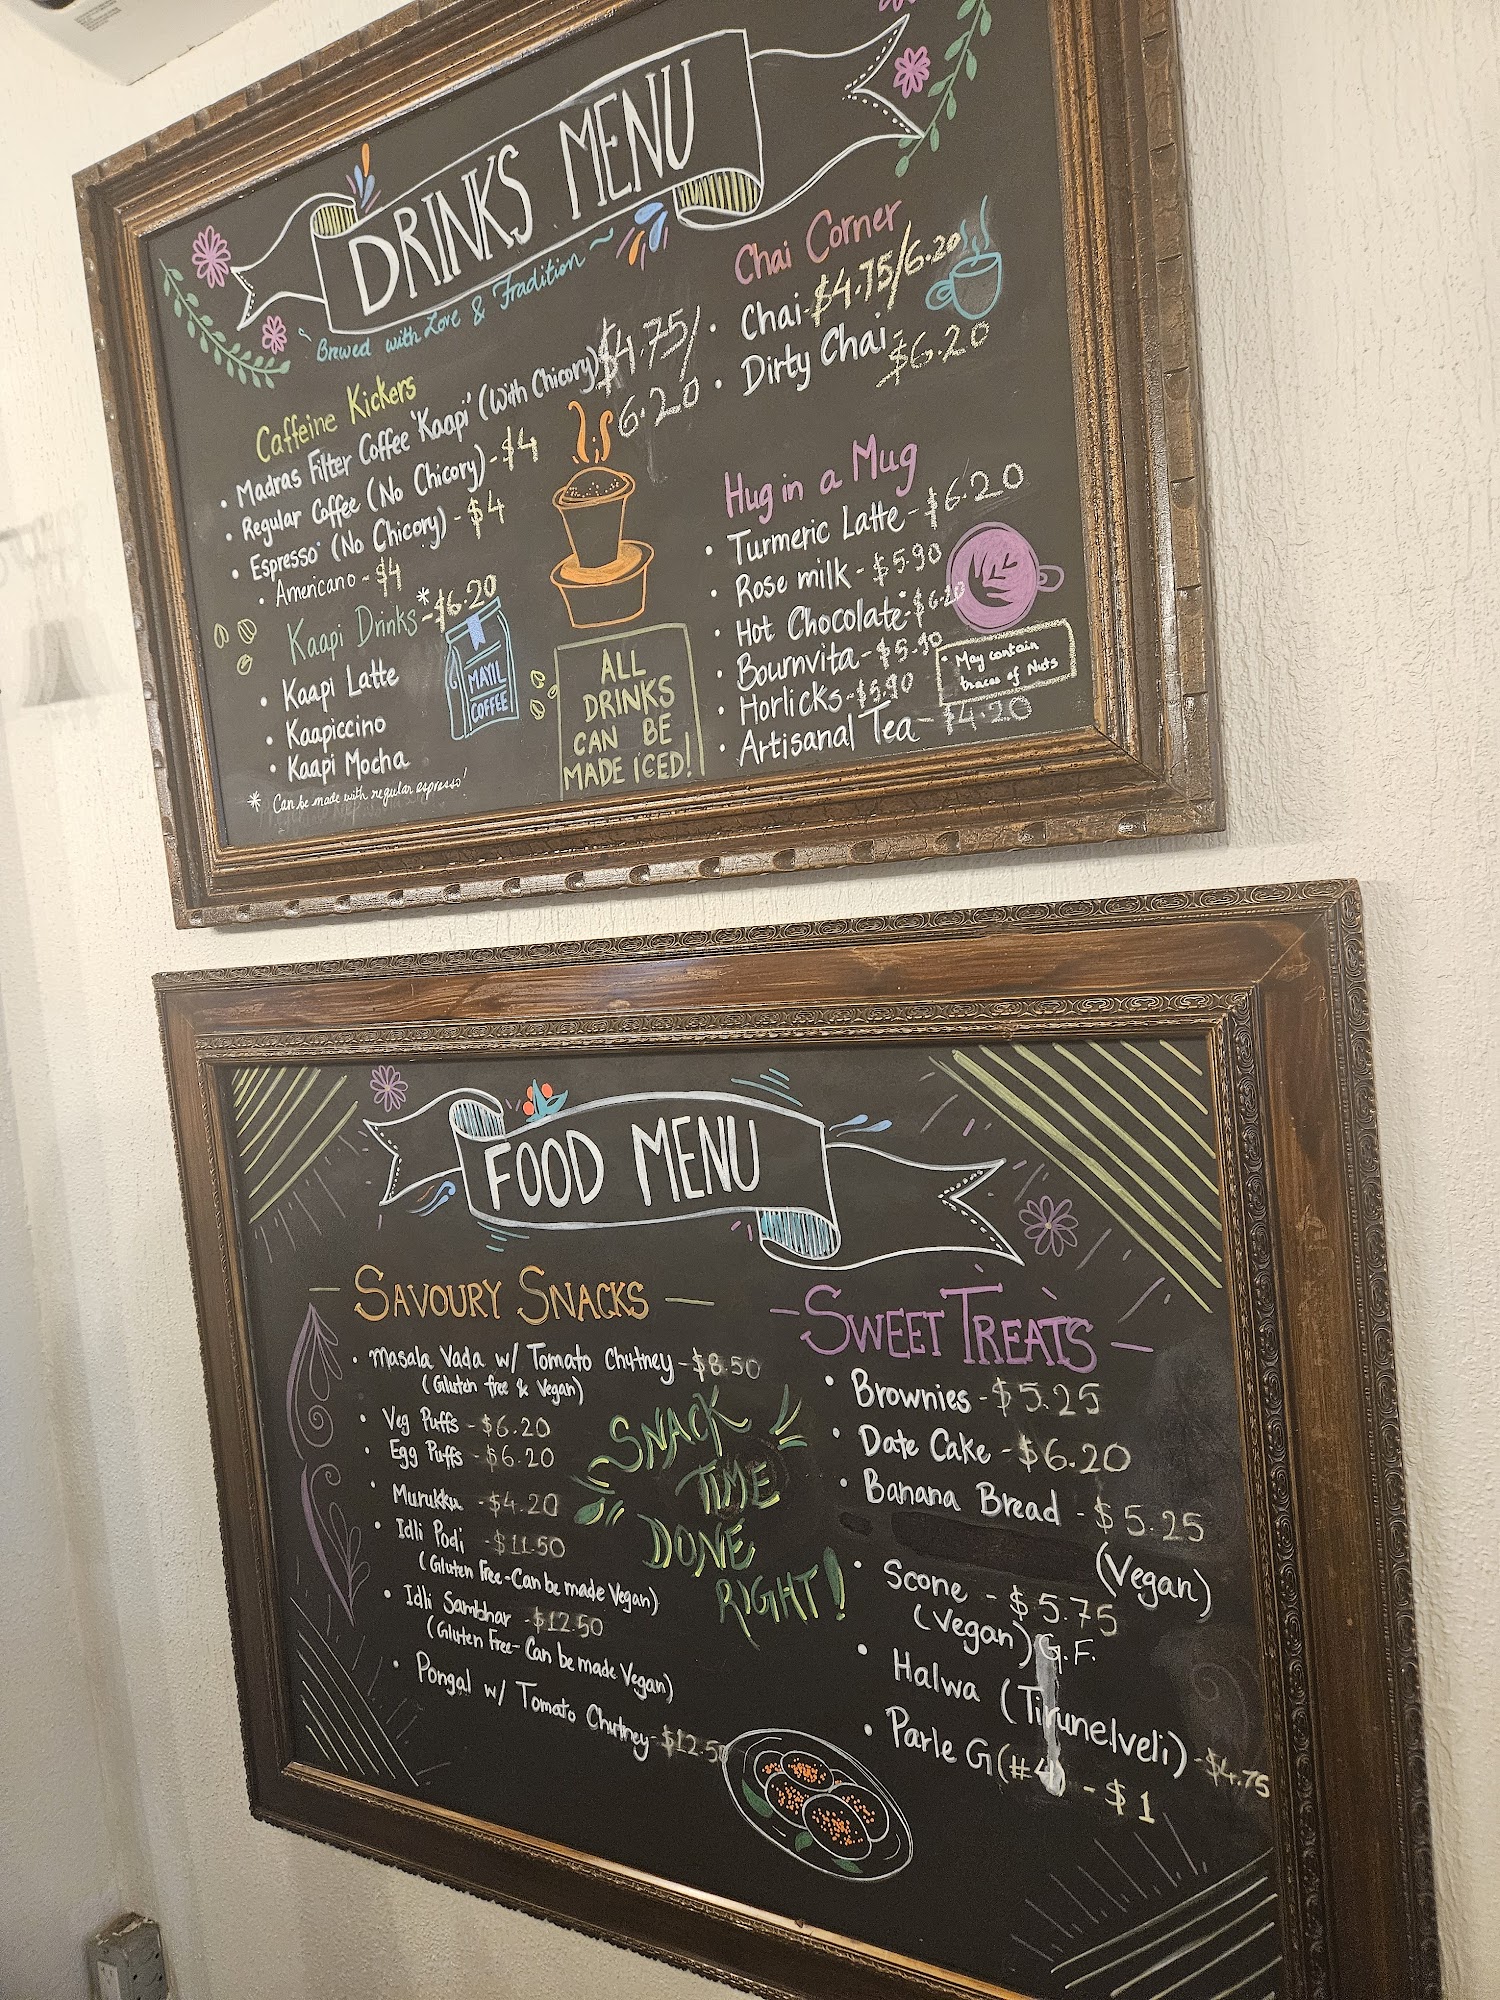 DRINKS MENU
Brewed with Love & Tradition ~
Caffeine Kickers
• Madras Filter Coffee 'Kaapi' (With Chicory) $4.75/
6.20
• Regular Coffee (No Chicory) - $4
• Espresso (No Chicory) - $4
• Americano - $4
Kaapi Drinks * - $6.20
• Kaapi Latte
• Kaapiccino
• Kaapi Mocha
* Can be made with regular espresso!
MAYIL
COFFEE
ALL
DRINKS
CAN BE
MADE ICED!
Chai Corner
• Chai - $4.75/6.20
• Dirty Chai - $6.20
Hug in a Mug
• Turmeric Latte - $6.20
• Rose milk - $5.90
• Hot Chocolate - $6.20
• Bournvita - $5.90
• Horlicks - $5.90
• Artisanal Tea - $4.20
• May contain
traces of Nuts
FOOD MENU
SAVOURY SNACKS
• Masala Vada w/ Tomato Chutney - $8.50
(Gluten free & Vegan)
• Veg Puffs - $6.20
• Egg Puffs - $6.20
• Murukku - $4.20
• Idli Podi - $11.50
(Gluten Free - Can be made Vegan)
• Idli Sambhar - $12.50
(Gluten Free - Can be made Vegan)
• Pongal w/ Tomato Chutney - $12.50
SNACK
TIME
DONE
RIGHT!
- SWEET TREATS -
• Brownies - $5.25
• Date Cake - $6.20
• Banana Bread - $5.25
(Vegan)
• Scone - $5.75
(Vegan) G.F.
• Halwa (Tirunelveli) - $4.75
• Parle G (#4) - $1